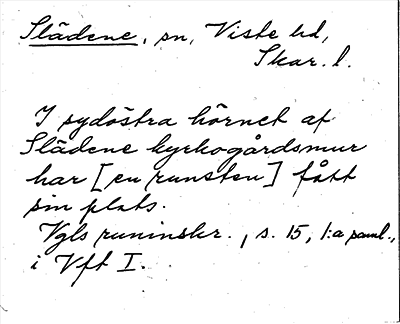 Slädene, sn, Viste hd,
Skar. l.
I sydöstra hörnet af
Slädene kyrkogårdsmur
har [en runsten] fått
sin plats.
Vgls runinskr., s. 15, 1:a saml.,
i Vft I.